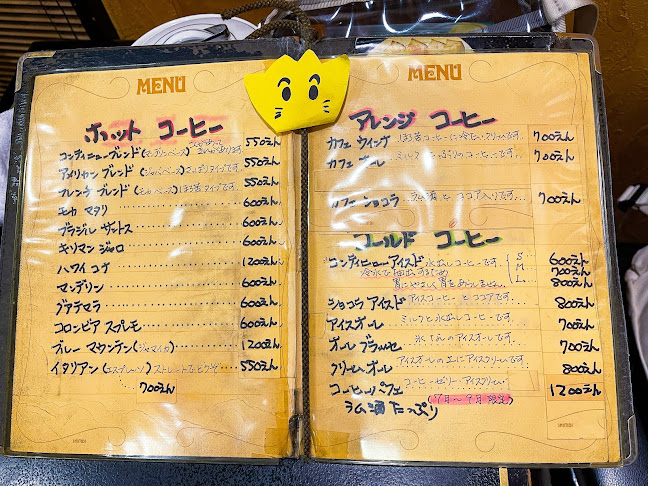 MENU
ホット コーヒー
コンティニューブレンド(マンデリンベース) 550えん
アメリカン ブレンド(ジャバベース) 550えん
フレンチ ブレンド(モカベース) 550えん
モカ マタリ 600えん
ブラジル サントス 600えん
キリマンジャロ 600えん
ハワイ コナ 1200えん
マンデリン 600えん
グアテマラ 600えん
コロンビア スプレモ 600えん
ブルー マウンテン(ジャマイカ) 1200えん
イタリアン(エスプレッソ)ストレートでどうぞ 550えん
700えん
MENU
アレンジ コーヒー
カフェ ウィンナ 700えん
カフェ オール 700えん
カフェ ショコラ ココア入りです 700えん
コールド コーヒー
コンティニュー アイスド 水出しコーヒーです S 600えん
冷水で抽出するため M 700えん
L 800えん
ショコラ アイスド アイスコーヒーとココアです 800えん
アイスオール ミルクと水出しコーヒーです 700えん
オール ブラッセ 700えん
クリームオール アイスオールの上にアイスクリームです 800えん
コーヒーパフェ コーヒーゼリー アイスクリーム 1200えん
(7月〜9月限定)
ラム酒 たっぷり